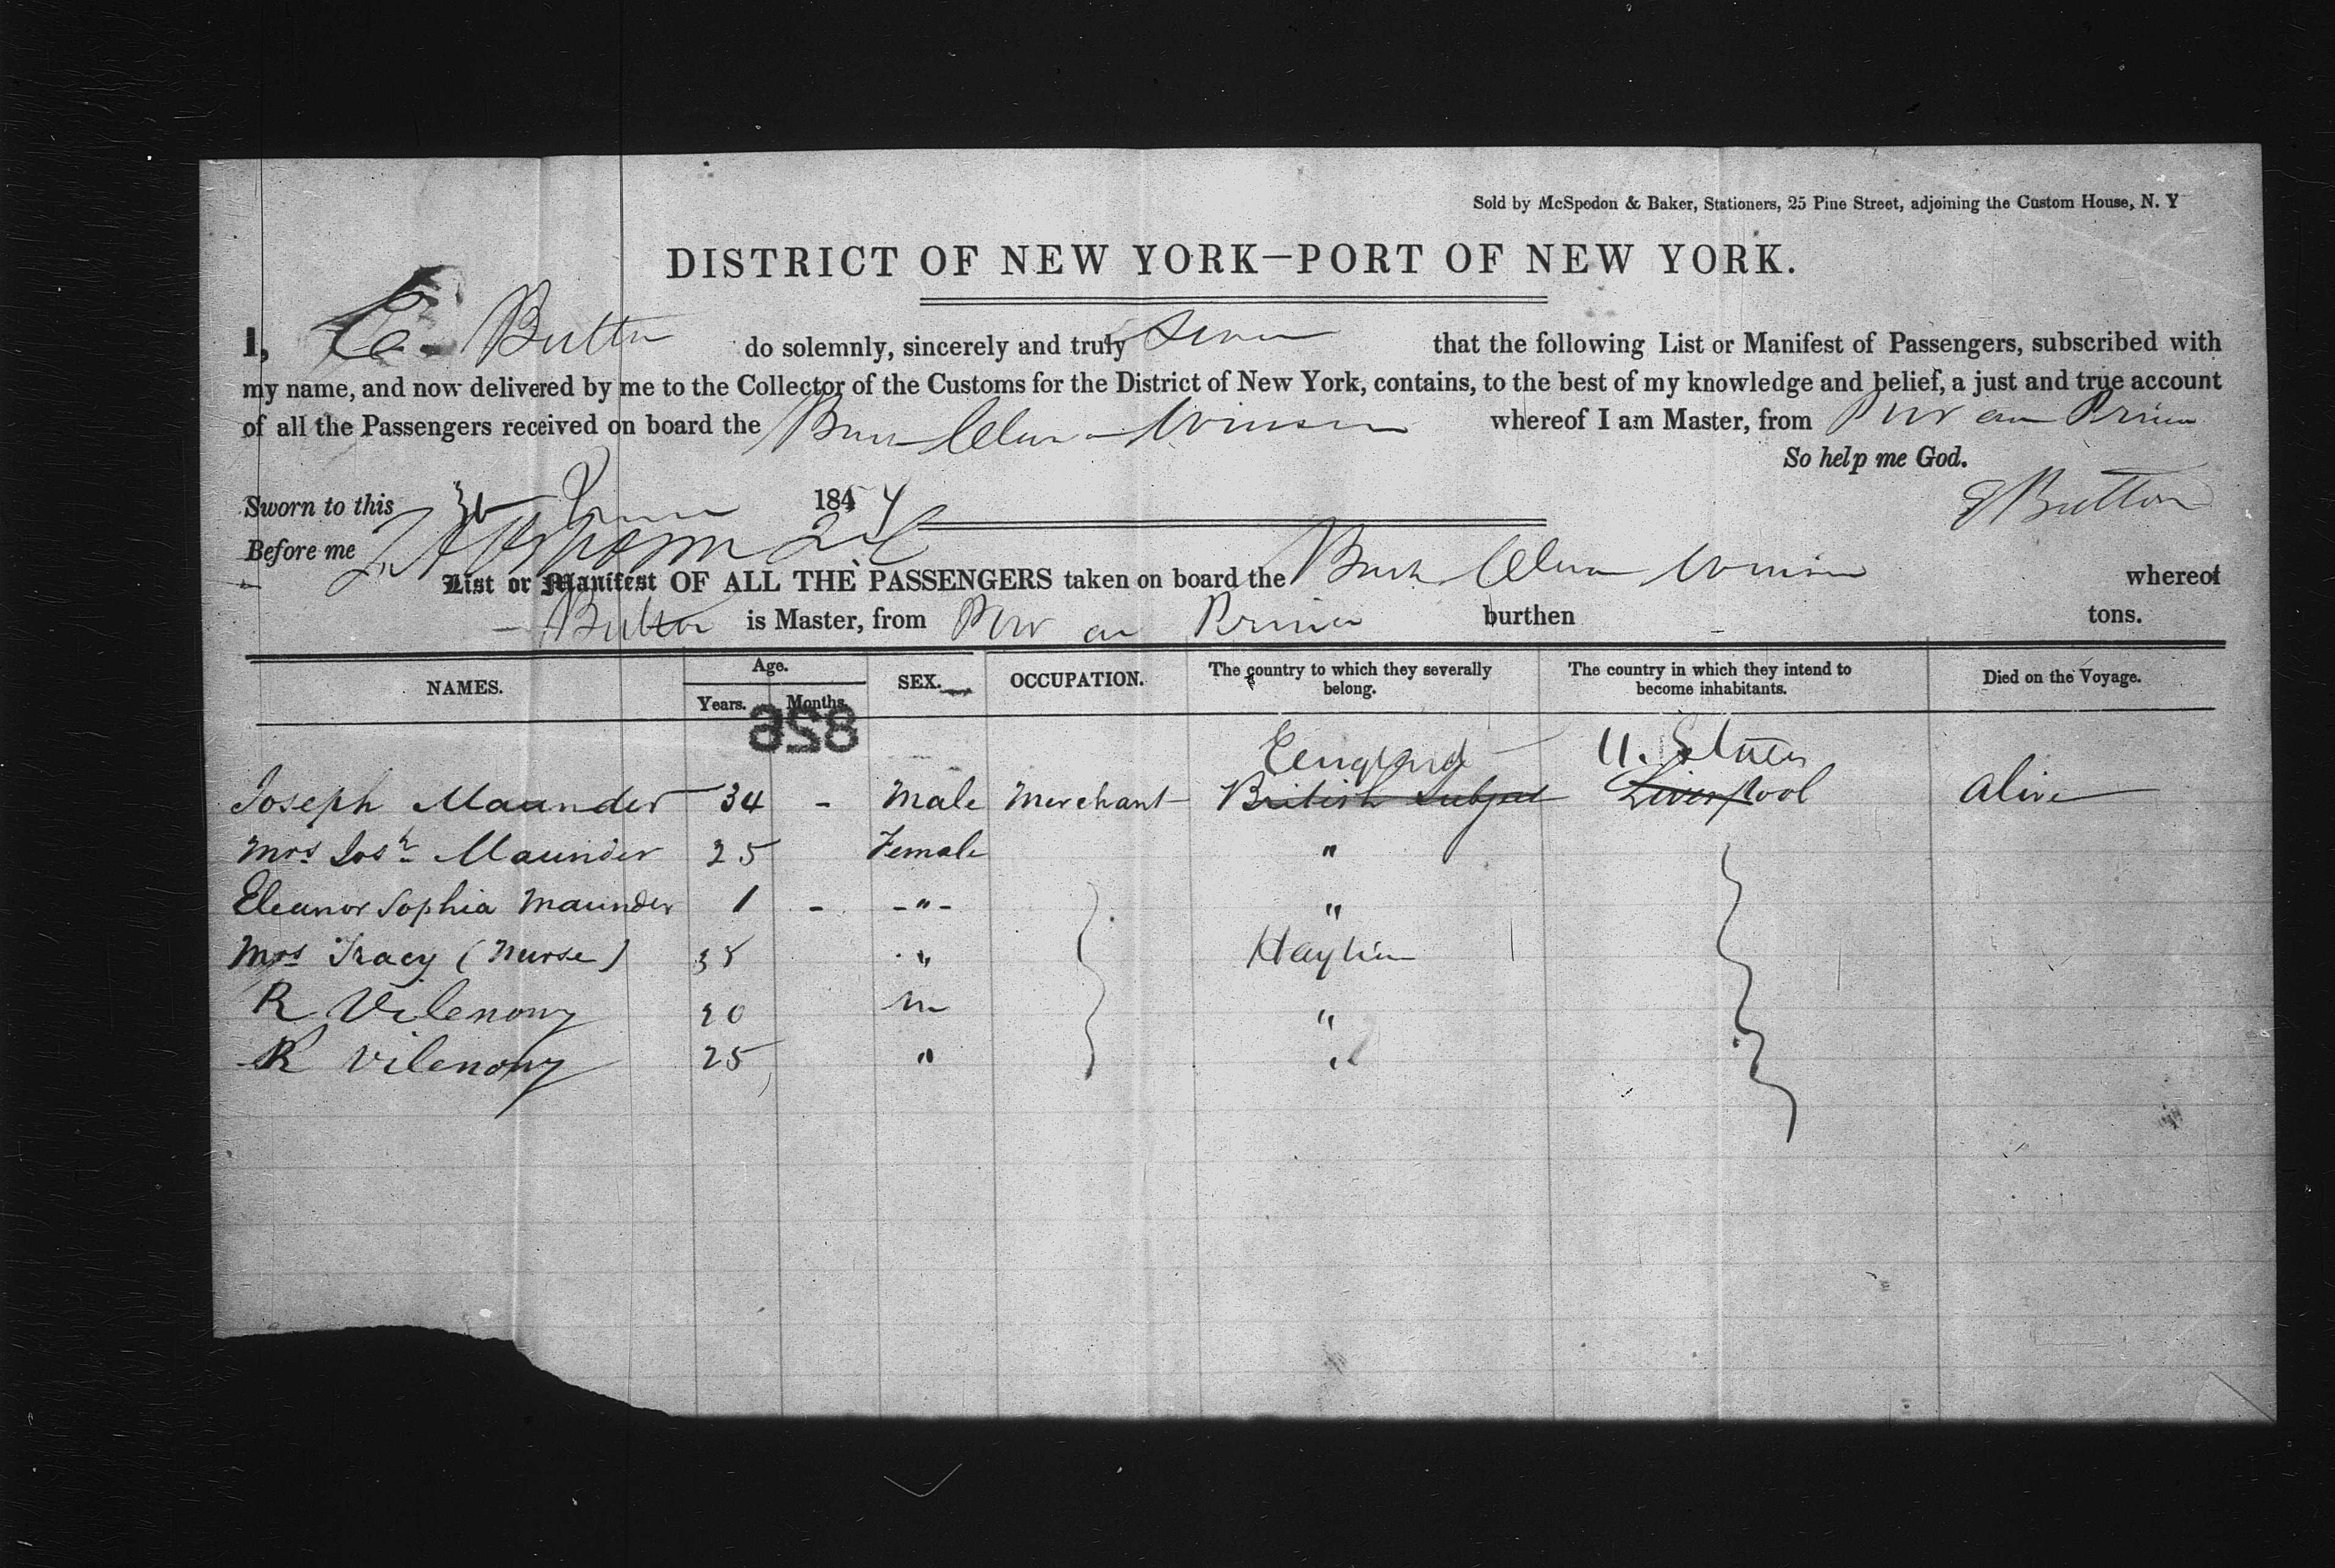 Sold by McSpedon & Baker, Stationers, 25 Pine Street, adjoining the Custom House, N. Y
DISTRICT OF NEW YORK—PORT OF NEW YORK.
I, E. Button do solemnly, sincerely and truly swear that the following List or Manifest of Passengers, subscribed with
my name, and now delivered by me to the Collector of the Customs for the District of New York, contains, to the best of my knowledge and belief, a just and true account
of all the Passengers received on board the whereof I am Master, from Port au Prince
So help me God.
Sworn to this June 1854
E Button
Before me
List or Manifest OF ALL THE PASSENGERS taken on board the whereof
Button is Master, from Port au Prince burthen tons.
NAMES. Age. Years. Months. SEX. OCCUPATION. The country to which they severally belong. The country in which they intend to become inhabitants. Died on the Voyage.
828
England U. States
Joseph Maunder 34 - Male Merchant British Subject Liverpool Alive
Mrs Josh Maunder 25 Female "
Eleanor Sophia Maunder 1 - -"- "
Mrs Tracy (Nurse) 38 " Haytien
R 20 m "
R 25 " "